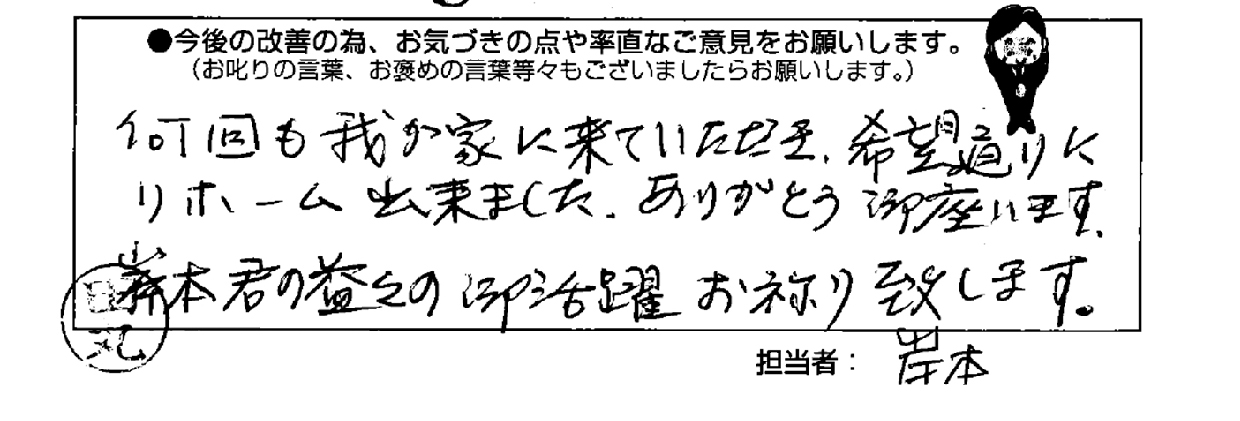 ●今後の改善の為、お気づきの点や率直なご意見をお願いします。
（お叱りの言葉、お褒めの言葉等々もございましたらお願いします。）
何回も我が家に来ていただき、希望通りに
リホーム出来ました、ありがとう御座います、
岸本君の益々の御活躍お祢り致します。
田丸
担当者： 岸本